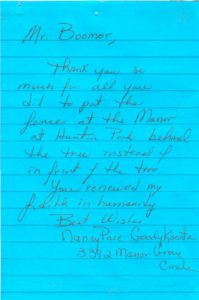 Mr. Boomer,
Thank you so
much for all you
did to put the
fence at the Manor
at Hunting Park behind
the tree instead of
in front of the tree
You renewed my
faith in humanity
Best Wishes
Nancy
3392 Manor Gray
Circle